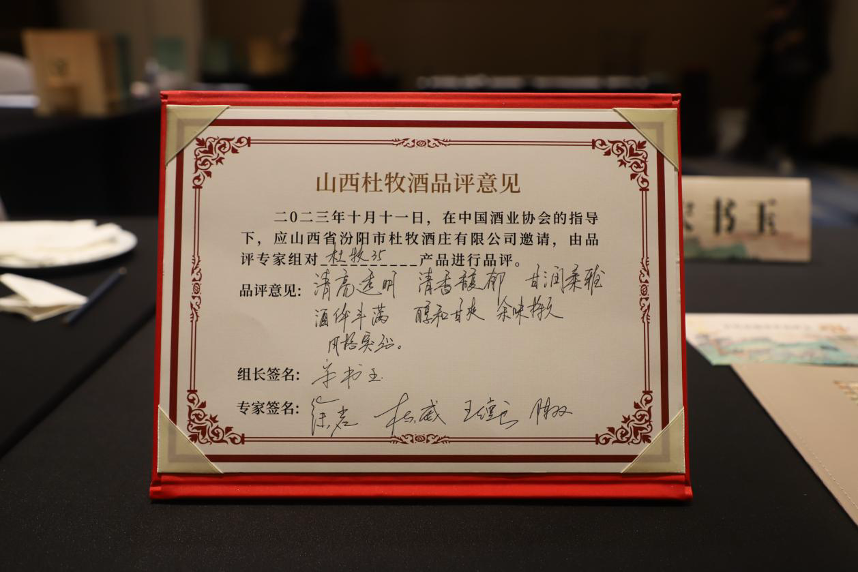 山西杜牧酒品评意见
二〇二三年十月十一日，在中国酒业协会的指导
下，应山西省汾阳市杜牧酒庄有限公司邀请，由品
评专家组对 杜牧35 产品进行品评。
品评意见：清亮透明 清香馥郁 甘润柔雅
酒体丰满 醇和甘爽 余味悠长
风格突出。
组长签名：宋书玉
专家签名：徐岩 杜威 王德良
宋书玉